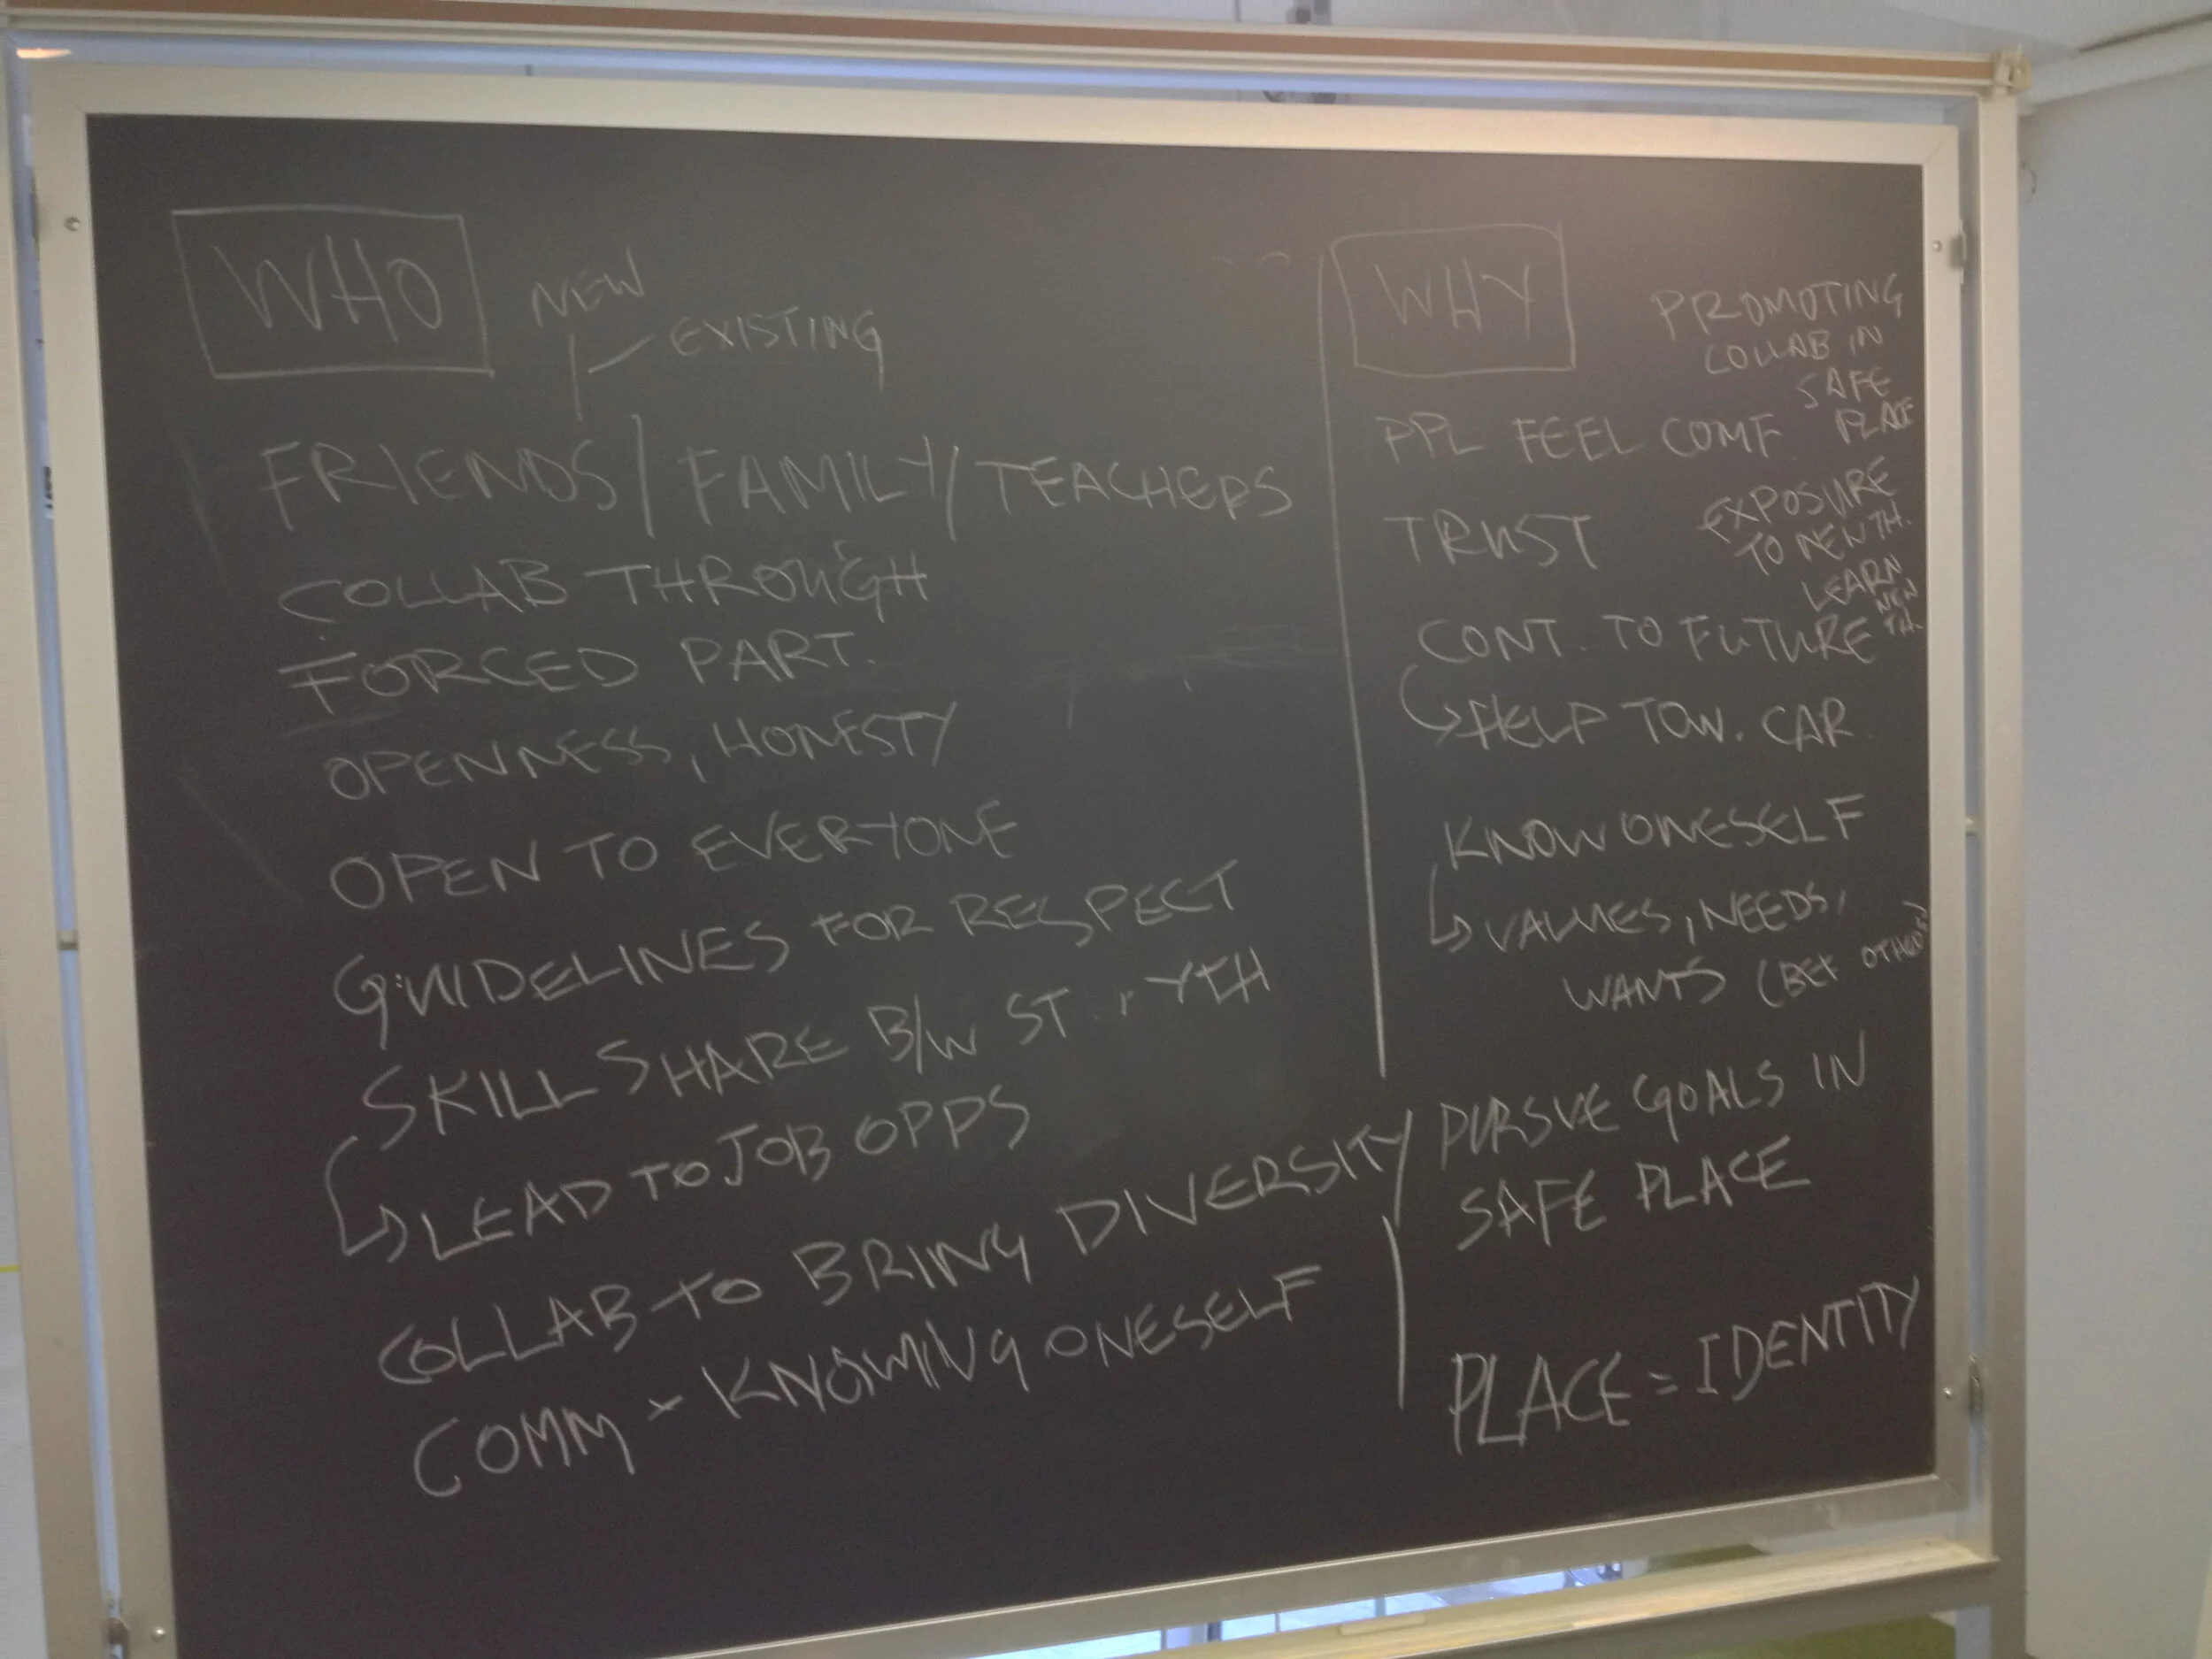 WHO
NEW
EXISTING
FRIENDS / FAMILY / TEACHERS
COLLAB THROUGH
FORCED PART.
OPENNESS, HONESTY
OPEN TO EVERYONE
GUIDELINES FOR RESPECT
SKILL SHARE B/W ST. , YTH
LEAD TO JOB OPPS
COLLAB TO BRING DIVERSITY
COMM - KNOWING ONESELF
WHY
PROMOTING
COLLAB IN
SAFE
PLACE
PPL FEEL COMF
TRUST
EXPOSURE
TO NEW TH.
LEARN
NEW
TH.
CONT. TO FUTURE
HELP TOW. CAR.
KNOW ONESELF
VALUES, NEEDS,
WANTS (
PURSUE GOALS IN
SAFE PLACE
PLACE = IDENTITY